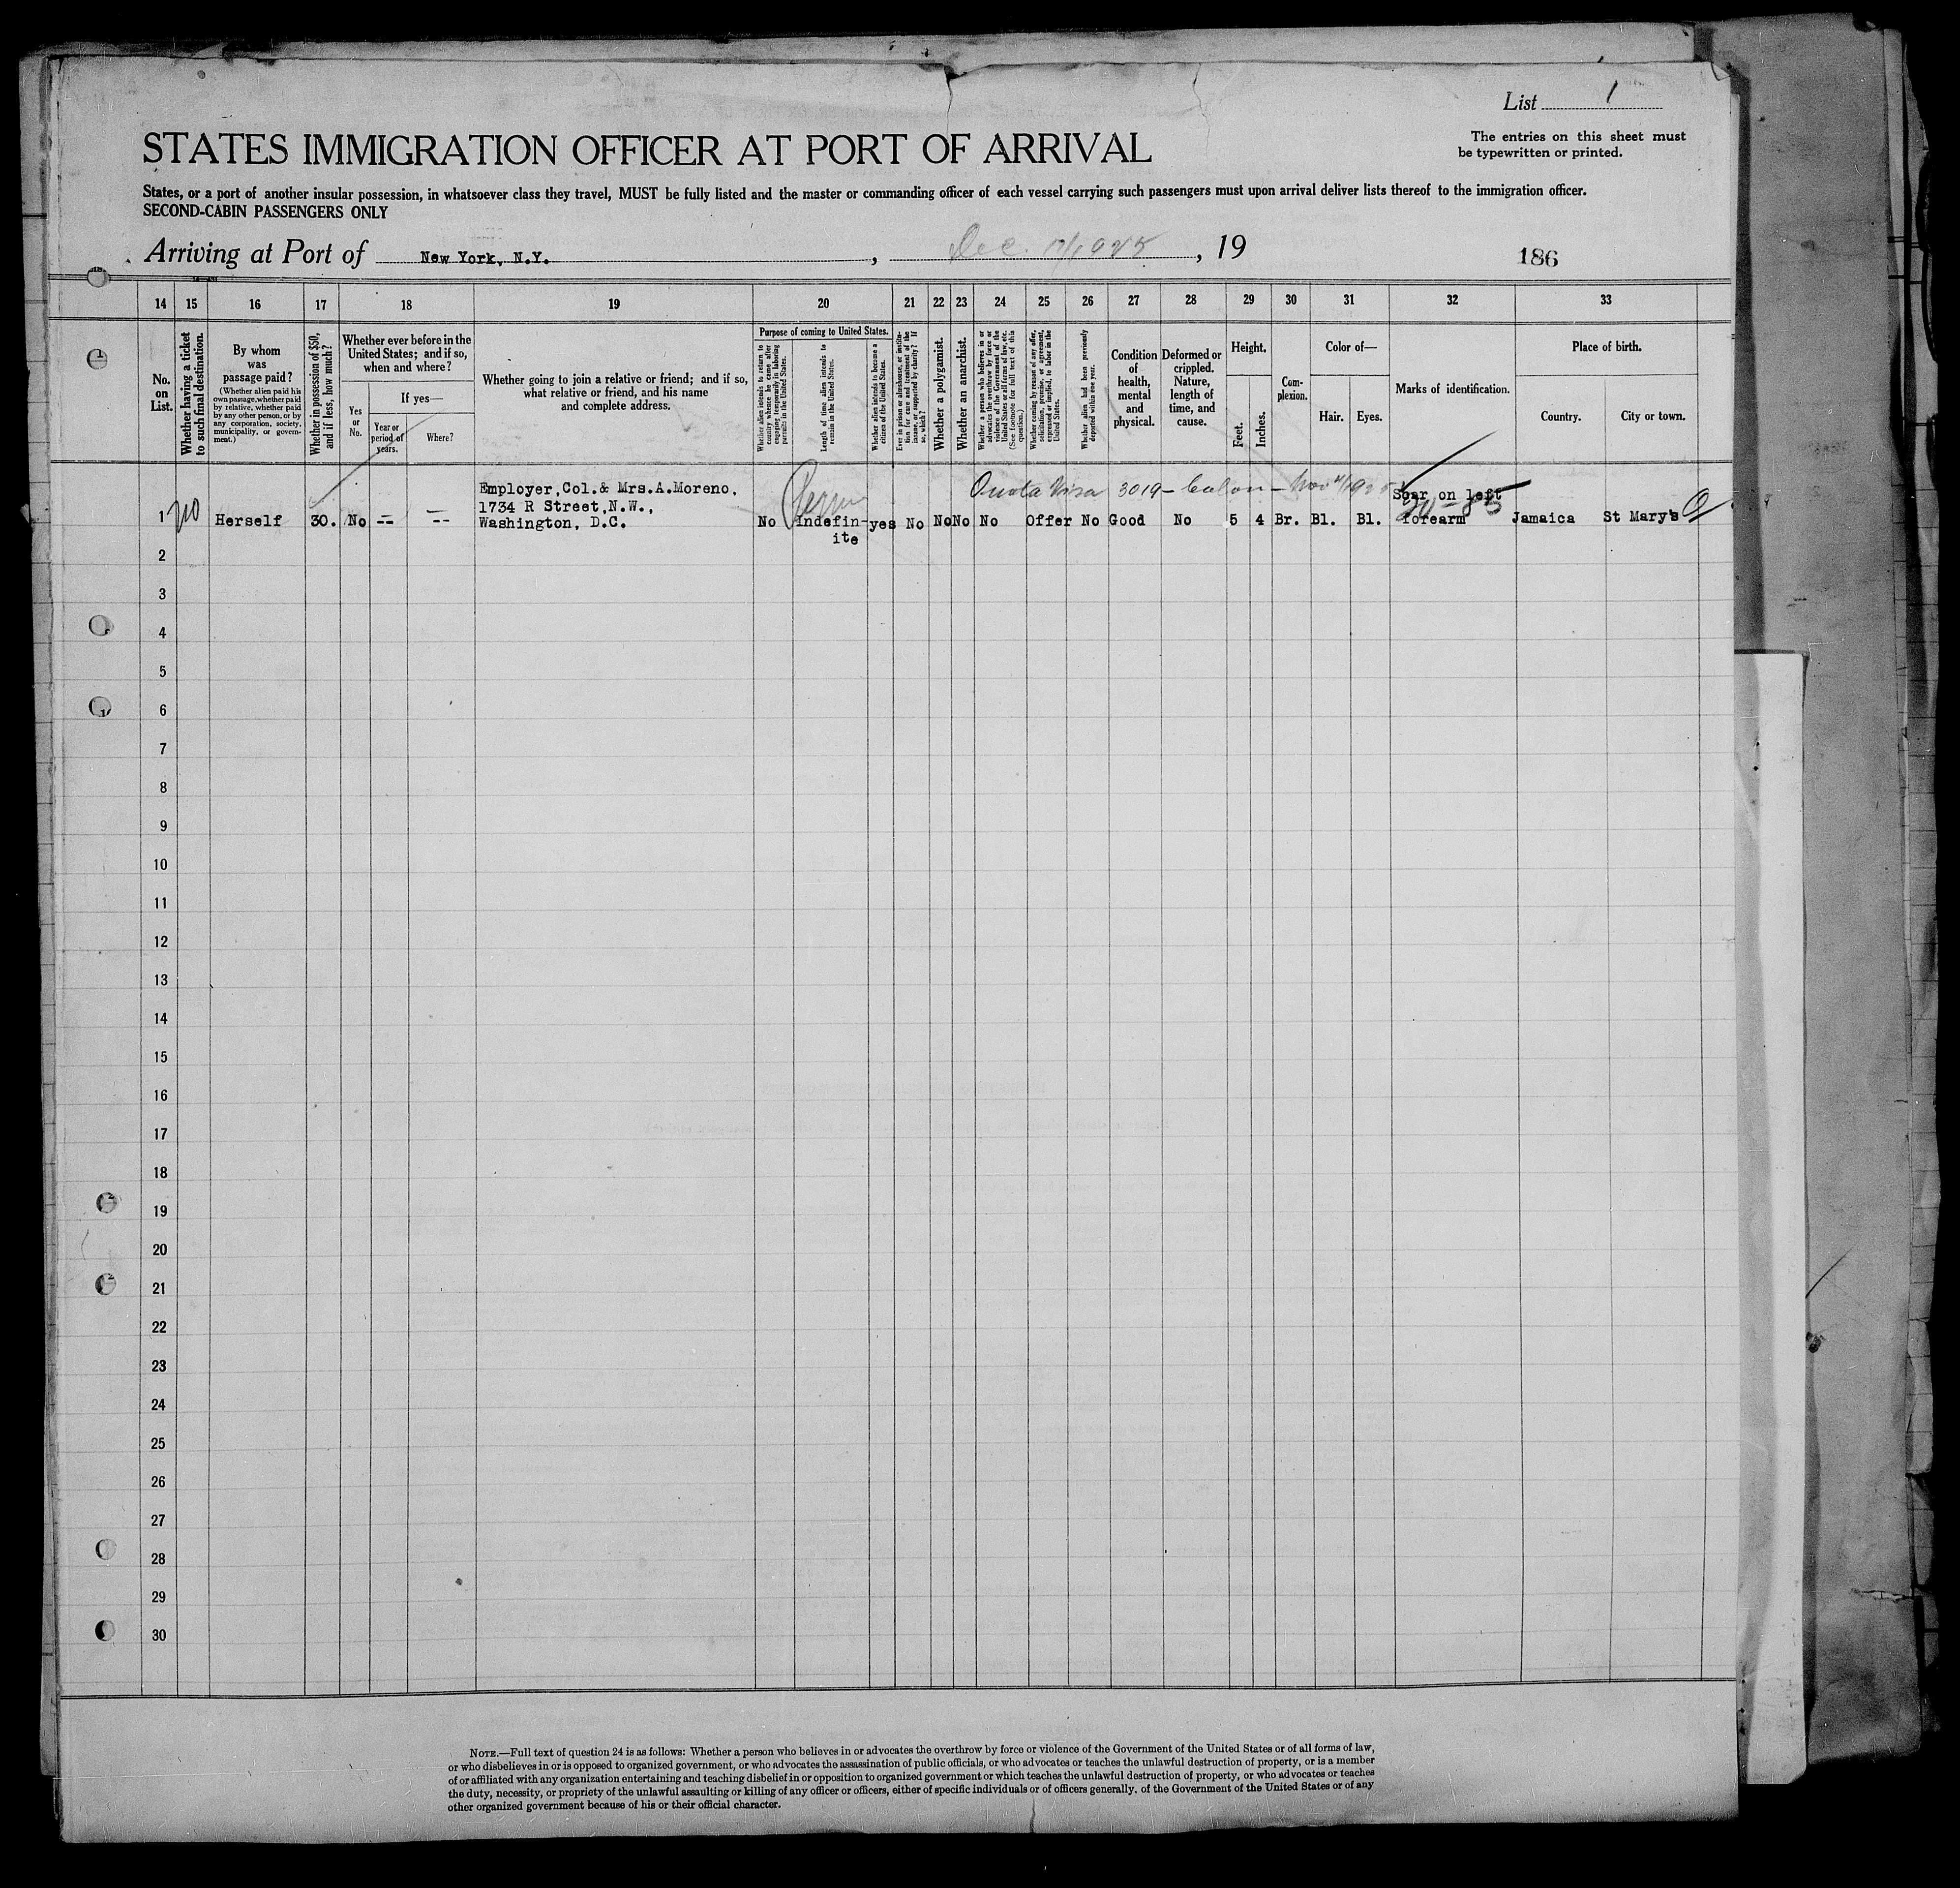 List 1
The entries on this sheet must
be typewritten or printed.
STATES IMMIGRATION OFFICER AT PORT OF ARRIVAL
States, or a port of another insular possession, in whatsoever class they travel, MUST be fully listed and the master or commanding officer of each vessel carrying such passengers must upon arrival deliver lists thereof to the immigration officer.
SECOND-CABIN PASSENGERS ONLY
Arriving at Port of New York, N.Y. , Dec. 1925 , 19
186
14 15 16 17 18 19 20 21 22 23 24 25 26 27 28 29 30 31 32 33
No. on List.
Whether having a ticket to such final destination.
By whom was passage paid?
(Whether alien paid his own passage, whether paid by relative, whether paid by any other person, or by any corporation, society, municipality, or government.)
Whether in possession of $50, and if less, how much?
Whether ever before in the United States; and if so, when and where?
Yes or No.
If yes—
Year or period of years.
Where?
Whether going to join a relative or friend; and if so, what relative or friend, and his name and complete address.
Purpose of coming to United States.
Whether alien intends to return to country whence he came after engaging temporarily in laboring pursuits in the United States.
Length of time alien intends to remain in the United States.
Whether alien intends to become a citizen of the United States.
Ever in prison or almshouse, or institution for care and treatment of the insane, or supported by charity? If so, which?
Whether a polygamist.
Whether an anarchist.
Whether a person who believes in or advocates the overthrow by force or violence of the Government of the United States or all forms of law, etc. (See footnote for full text of this question.)
Whether coming by reason of any offer, solicitation, promise, or agreement, expressed or implied, to labor in the United States.
Whether alien had been previously deported within one year.
Condition of health, mental and physical.
Deformed or crippled. Nature, length of time, and cause.
Height.
Feet.
Inches.
Complexion.
Color of—
Hair.
Eyes.
Marks of identification.
Place of birth.
Country.
City or town.
Quota Visa 3019 - Colon - Nov
Employer,Col.& Mrs.A.Moreno,
1734 R Street,N.W.,
Washington, D.C.
1 no Herself 30. No -- -- No Indefinite yes No No No No Offer No Good No 5 4 Br. Bl. Bl. Scar on left forearm Jamaica St Mary's
2
3
4
5
6
7
8
9
10
11
12
13
14
15
16
17
18
19
20
21
22
23
24
25
26
27
28
29
30
NOTE.—Full text of question 24 is as follows: Whether a person who believes in or advocates the overthrow by force or violence of the Government of the United States or of all forms of law,
or who disbelieves in or is opposed to organized government, or who advocates the assassination of public officials, or who advocates or teaches the unlawful destruction of property, or is a member
of or affiliated with any organization entertaining and teaching disbelief in or opposition to organized government or which teaches the unlawful destruction of property, or who advocates or teaches
the duty, necessity, or propriety of the unlawful assaulting or killing of any officer or officers, either of specific individuals or of officers generally, of the Government of the United States or of any
other organized government because of his or their official character.